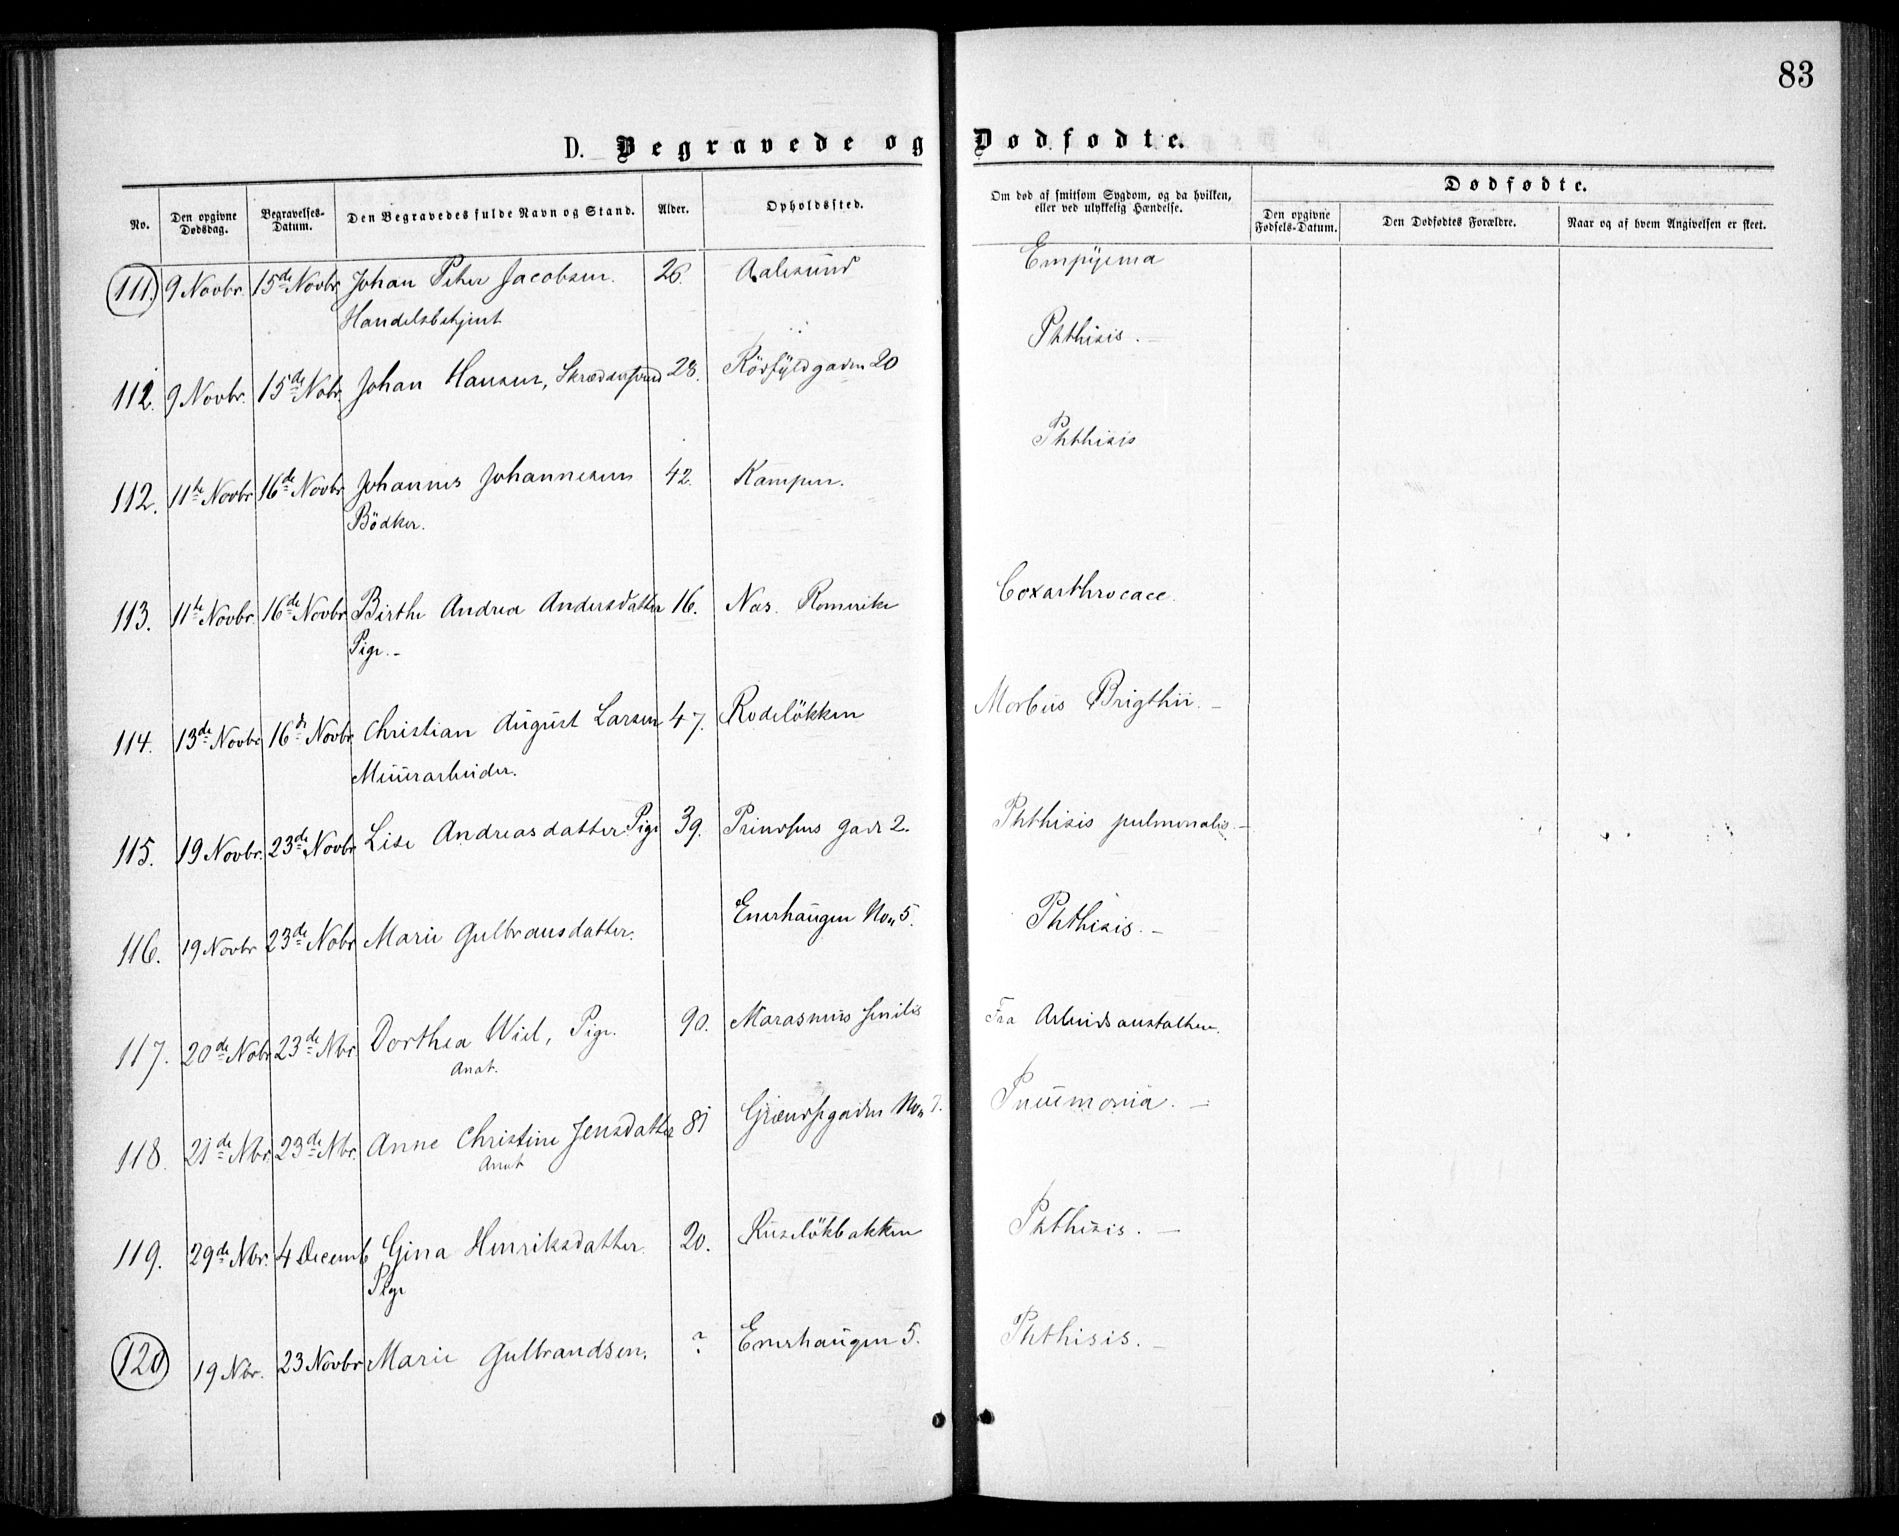 83
D. Begravede og Dødfødte.
No. Den opgivne Dødsdag. Begravelses-Datum. Den Begravedes fulde Navn og Stand. Alder. Opholdssted. Om død af smitsom Sygdom, og da hvilken, eller ved ulykkelig Hændelse. Dødfødte.
Den opgivne Fødsels-Datum. Den Dødfødtes Forældre. Naar og af hvem Angivelsen er skeet.
111. 9 Novbr. 15de Novbr Johan Peter Jacobsen. 26. Aalesund Empyema
Handelsbetjent
112. 9 Novbr. 15de Nobr. Johan Hansen, Skræddersvend 28. Rörfyldgaden 20 Phthisis. —
112. 11te Novbr 16de Novbr Johannes Johannesen 42. Kampen. Phthisis
Bödker.
113. 11te Novbr. 16de Novbr. Birthe Andrea Andersdatter 16. Næs. Romerike Coxarthrocace.
Pige. —
114. 13de Novbr 16de Novbr. Christian August Larsen 47. Rodelökken Morbus Brigthii. —
Muurarbeider.
115. 19 Novbr. 23de Novbr Lise Andreasdatter Pige 39. Prindsens gade 2. Phthisis pulmonalis. —
116. 19 Novbr 23de Nobr Marie Gulbransdatter. Enerhaugen No 5. Phthisis. —
117. 20de Nobr 23de Nbr. Dorthea Wiel, Pige. 90. Marasmus senilis Fra Arbeidsanstalten.
Anat.
118. 21de Nbr. 23de Nbr. Anne Christine Jensdatter 81 Grændsegaden No 7. Pneumonia. —
Anat
119. 29de Nbr. 4 Decemb Gina Henriksdatter. 20. Ruselökbakken Phthisis. —
Pige
120 19 Nbr. 23 Novbr Marie Gulbrandsen. ? Enerhaugen 5. Phthisis. —